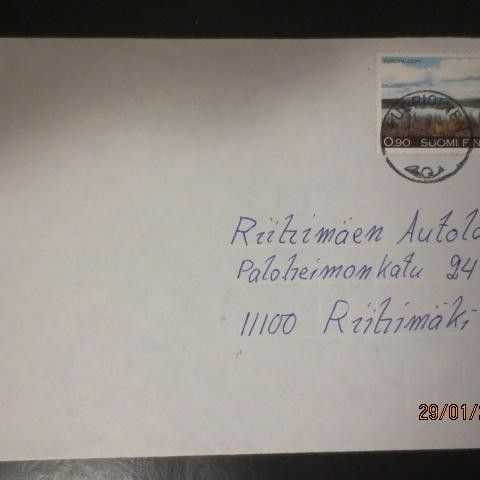 EUROPA-CEPT
0.90 SUOMI FIN
Riihimäen Autola
Paloheimonkatu 24
11100 Riihimäki
29/01/2